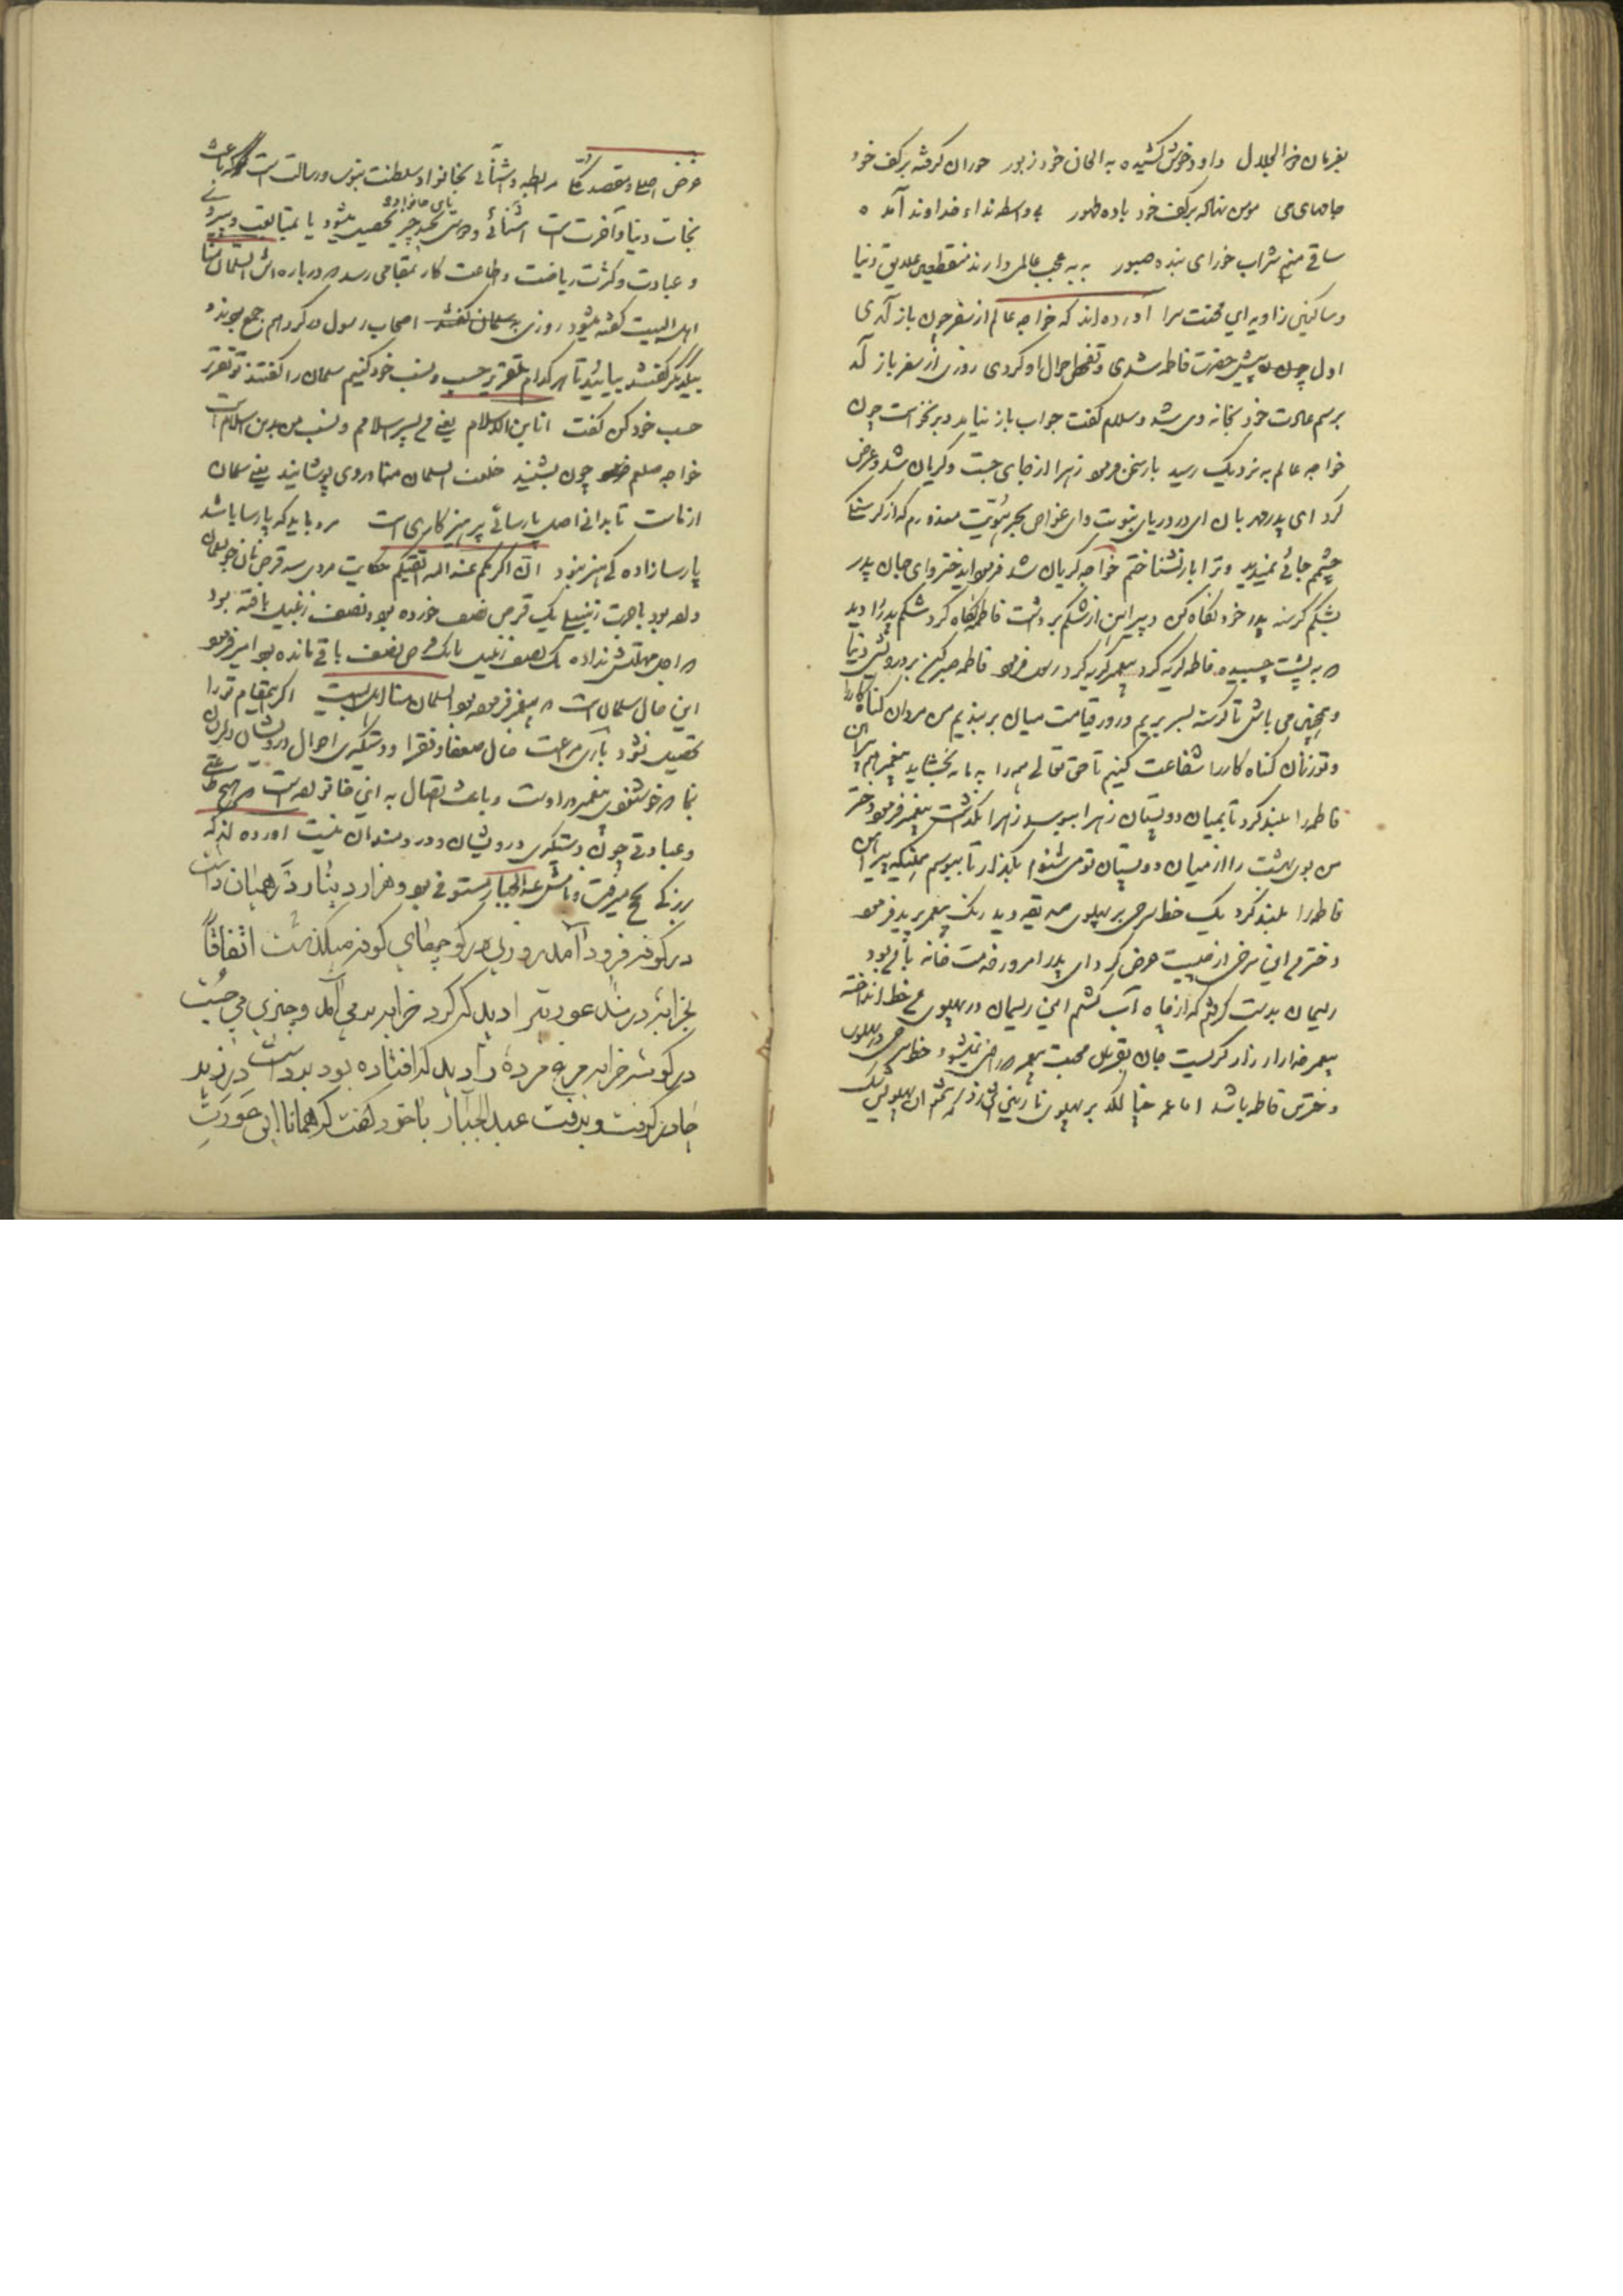 بفرمان ذو الجلال داود خوش کشیده به الحان خود زبور حوران گرفته بر کف خود
جامهای می مومن نهاکه بر کف خود باده طهور بی واسطه نداء خداوند آمد
ساقی منم شراب خور ای بنده صبور به به عجب عالمی دارند منقطعین علایق دنیا
و ساکنین زاویه این محنت سرا آورده اند که خواجه عالم از سفر چون باز آمدی
اول چون پیش حضرت فاطمه شدی و تفحص احوال او کردی روزی از سفر باز آمد
برسم عادت خود بخانه وی شد و سلام کفت جواب باز نیامد و برنخواست چون
خواجه عالم به نزدیک رسید باز سخن فرمود زهرا از جای جست و کریان شد و عرض
کرد ای پدر مهربان ای در دریای نبوت و ای غواص بحر فتوت معذورم که از کرسنکی
چشمم جائی نمیدید و ترا باز نشناختم خواجه کریان شد فرمود ایدختر و ای جان پدر
بشکم کرسنه پدر خود نکاه کن و پیراهن از شکم برداشت فاطمه نکاه کرد شکم پدر را دید
به پشت چسبیده فاطمه کریه کرد پیغمبر کریه کرد رسول فرمود فاطمه صبر کن بر درویشی دنیا
و همچنین می باش تا کرسنه بسر بریم و روز قیامت میان بر بندیم من مردان کناه کار را
و تو زنان کناه کار را شفاعت کنیم تا حق تعالی همه را به ما بخشاید پیغمبر پیراهن
فاطمه را بلند کرد تا بمیان دو پستان زهرا ببوسد زهرا نگذاشت پیغمبر فرمود دختر
من بوی بهشت را از میان دو پستان تو می شنوم بگذار تا ببوسم همینکه پیراهن
فاطمه را بلند کرد یک خط سرخی بر پهلوی صدیقه دید رنک پیغمبر پرید فرمود
دخترم این سرخی از چیست عرض کرد ای پدر امروز خدمت خانه با من بود
ریسمان بدست کرفتم که از چاه آب کشم این ریسمان در پهلوی من خط انداخته
پیغمبر خدا زار زار کریست جان بقربان محبت پیغمبر راضی نمیشود خط سرخی در پهلوی
دخترش فاطمه باشد اما عمر لکد بر پهلوی نازنینش زد
غرض اصلی و مقصد کلی رابطه و آشنائی بخانواده سلطنت نبوت و رسالت است که باعث
نجات دنیا و آخرت است آشنائی و دوستی بچه چیز تحصیل میشود یا بمتابعت و پیروی
و عبادت و کثرت ریاضت و طاعت کار بمقامی رسد در باره اش السلمان منا
اهل البیت کفته میشود روزی اصحاب رسول در کرد هم جمع بودند
بیکدیکر کفتند بیائید تا هر کدام تقریر حسب و نسب خود کنیم سلمان را کفتند تو تقریر
حسب خود کن کفت انا ابن الاسلام یعنی من پسر اسلامم و نسب من بدین اسلام است
خواجه صلعم چون بشنید خلعت السلمان منا در وی پوشانید یعنی سلمان
از ماست تا بدانی اصل پارسائی پرهیزکاری است مرد باید که پارسا باشد
پارسازاده کی هنر نبود ان اکرمکم عند الله اتقیکم حکایت مردی سه قرص نان جو بسلمان
داده بود باجرت زنبیلی یک قرص نصف خورده بود و نصف زنبیل بافته بود
اجل مهلتش نداده یک نصف زنبیل با یک قرص و نصف باقی مانده بود
این حال سلمان است پیغمبر فرموده بود السلمان منا اهل البیت اکر اینمقام تو را
تحصیل نشود باری مراعات حال ضعفا و فقرا و دستکیری احوال درویشان
نما خوشنودی پیغمبر در اوست و باعث اتصال به این خانواده است هیچ طاعتی
و عبادتی چون دستکیری درویشان و دردمندان نیست آورده اند که
بزرکی بحج میرفت نامش عبد الجبار مستوفی بود هزار دینار در همیان داشت
در کوفه فرود آمد روزی در کوچهای کوفه میکذشت اتفاقا
بخرابه در شد عورتی را دید که کرد خرابه بر می آمد و چیزی می جست
در کوشه خرابه مرغ مرده را دید که افتاده بود برداشت در زیر
چادر کرفت و برفت عبد الجبار با خود کفت که همانا این عورت